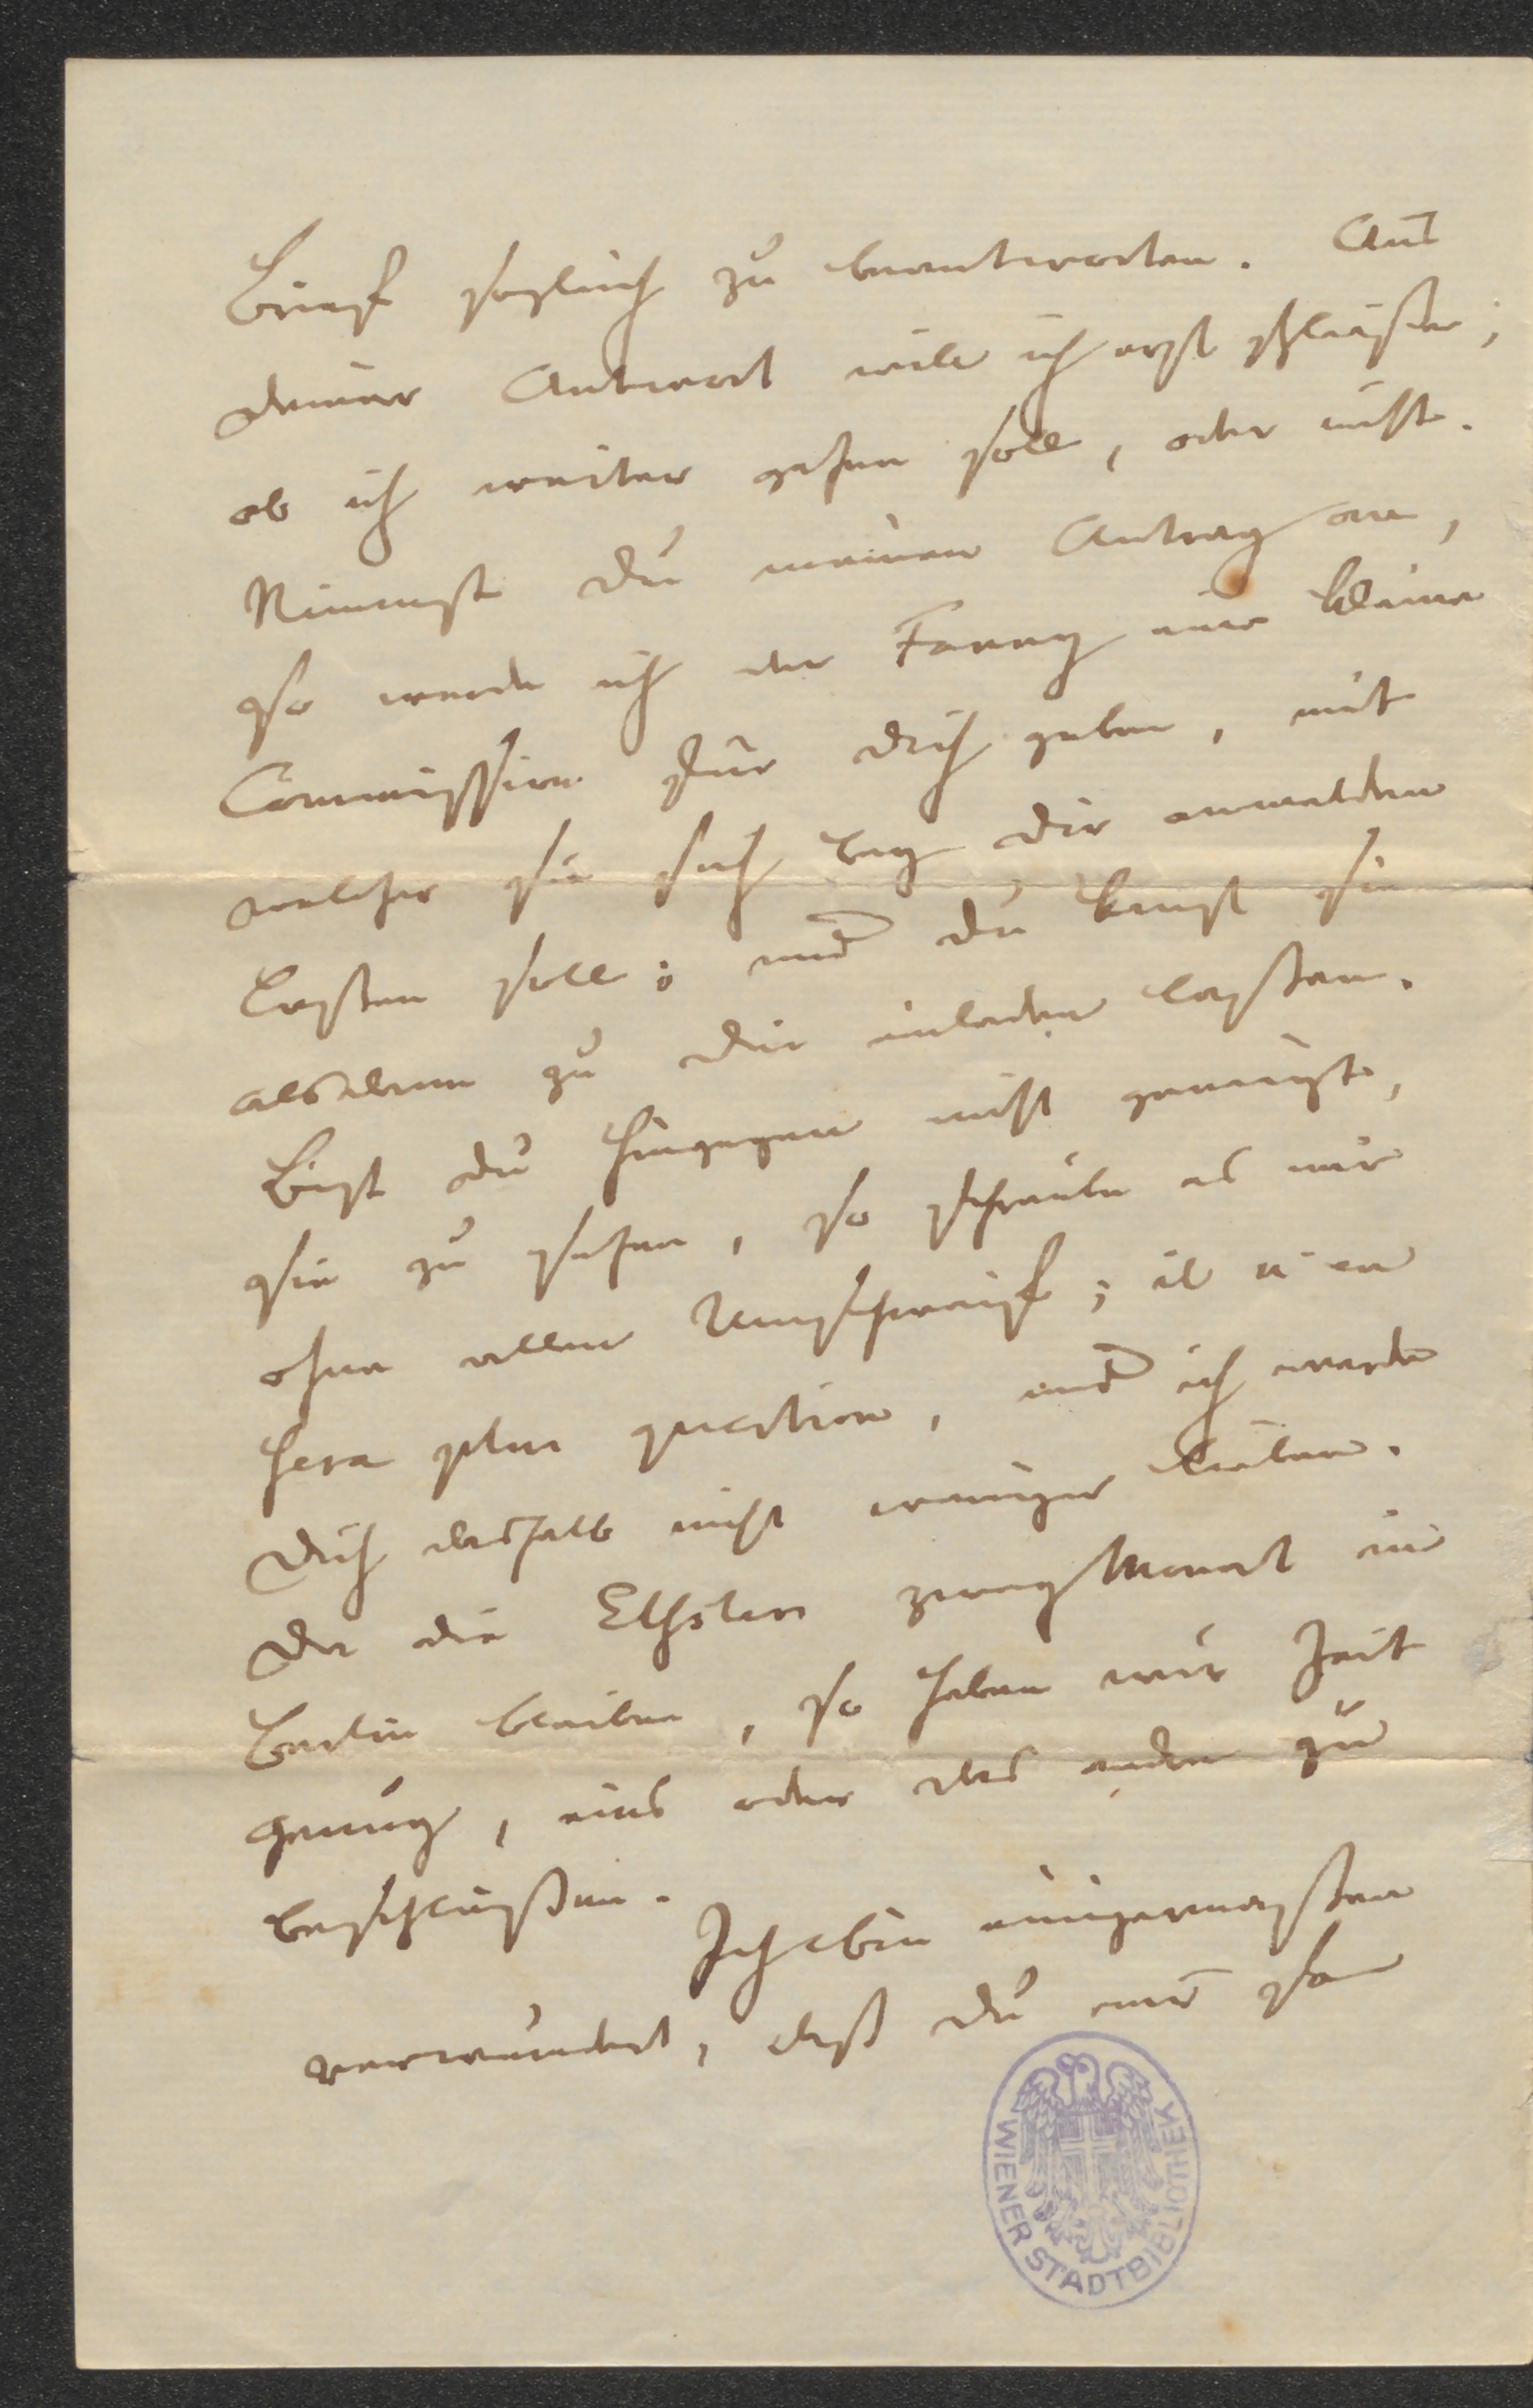 Brief sogleich zu beantworten. Aus
deiner Antwort will ich erst schließen,
ob ich weiter gehen soll, oder nicht.
Nimmst du meinen Antrag an,
so werde ich der Fanny eine kleine
Commission für dich geben, mit
welcher sie sich bey dir anmelden
lassen soll; und du kanst sie
alsdenn zu dir einladen lassen.
Bist du hingegen nicht geneigt,
sie zu sehen, so schreibe es mir
ohne allen Umschweif; il n'en
sera plus question, und ich werde
dich deshalb nicht weniger lieben.
Da die Elßler zwey Monat in
Berlin bleiben, so haben wir Zeit
genug, eins oder das andre zu
beschließen. Ich bin einigermassen
verwundert, daß du mir so
WIENER STADTBIBLIOTHEK